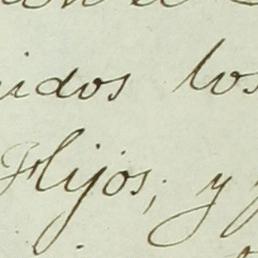 idos los
Hijos; y